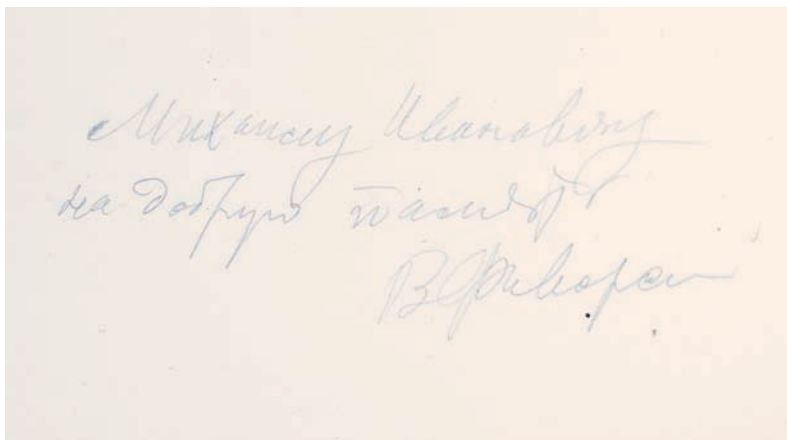 Михаилу Ивановичу
на добрую память
В Фаворск